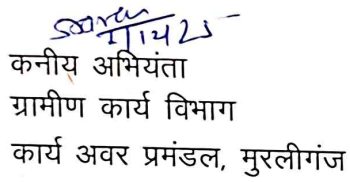 कनीय अभियंता
ग्रामीण कार्य विभाग
कार्य अवर प्रमंडल, मुरलीगंज